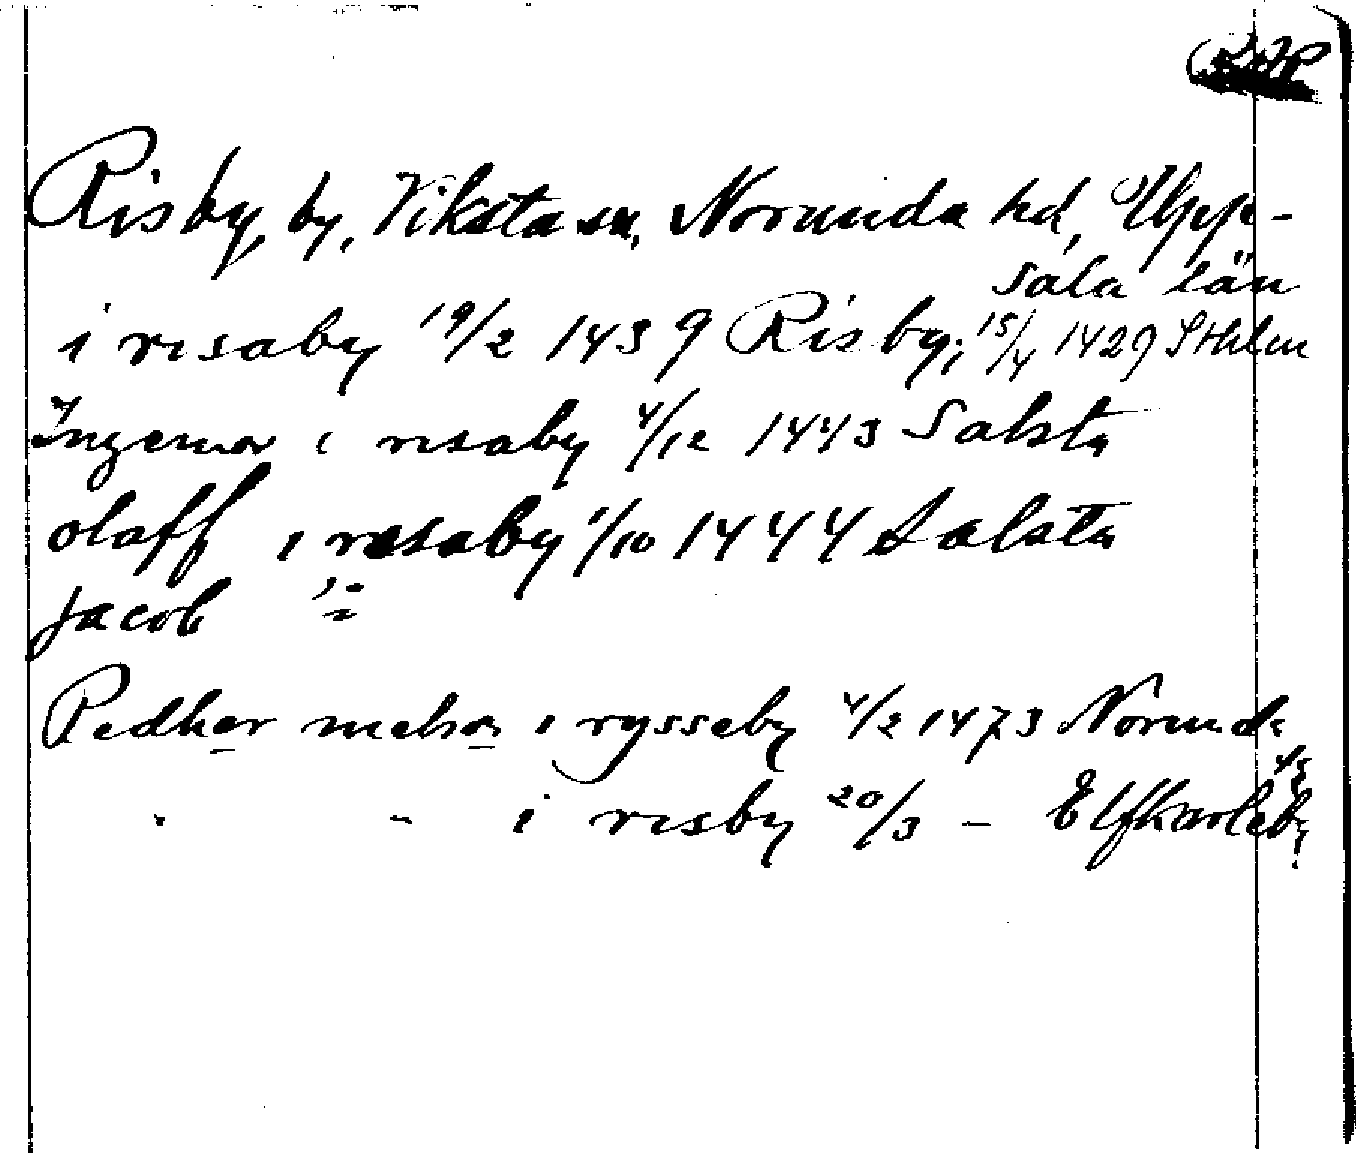 Risby, by, Viksta sn, Norunda hd, Upp-
sala län
i risaby 19/2 1439 Risby; 15/4 1429 Sthlm
Ingemar i risaby 4/12 1443 Salsta
olaff i risaby 1/10 1444 Salsta
Jacob "
Pedher nielson i rysseby 4/2 1473 Norunda
" - i risby 20/3 - Elfkarleby